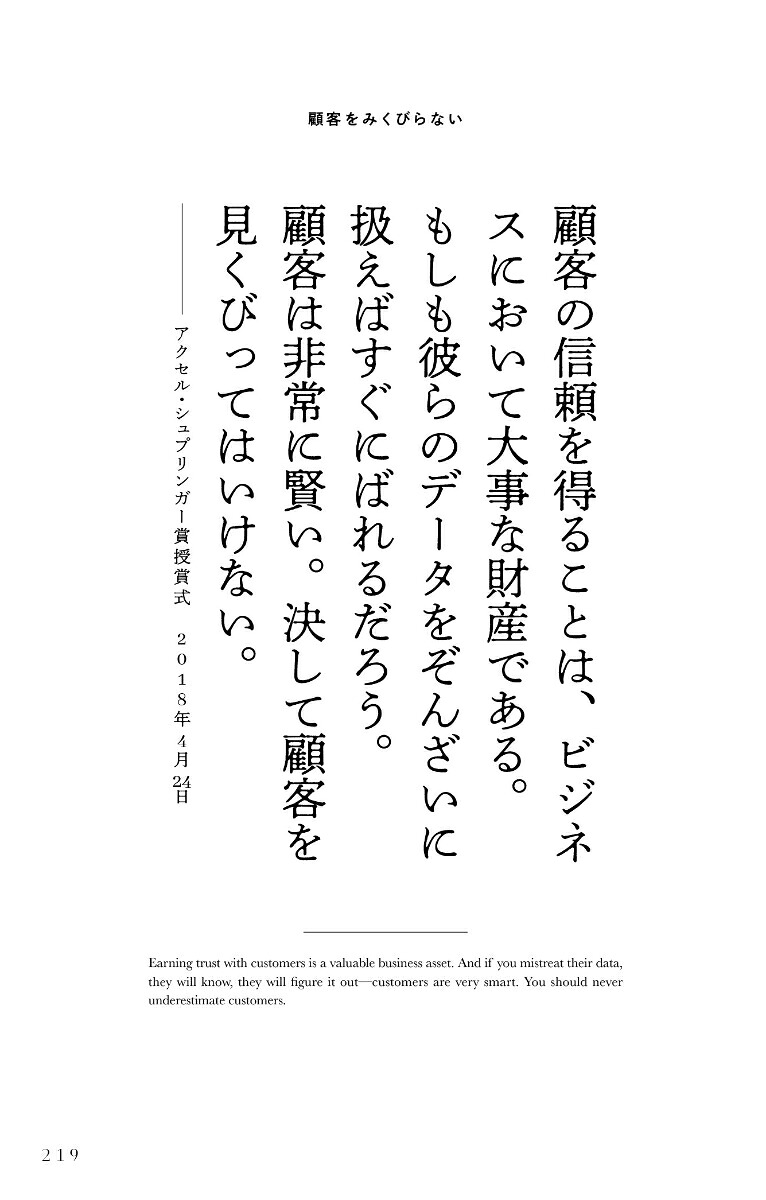 顧客をみくびらない
顧客の信頼を得ることは、ビジネ
スにおいて大事な財産である。
もしも彼らのデータをぞんざいに
扱えばすぐにばれるだろう。
顧客は非常に賢い。決して顧客を
見くびってはいけない。
――アクセル・シュプリンガー賞授賞式 2018年4月24日
Earning trust with customers is a valuable business asset. And if you mistreat their data,
they will know, they will figure it out—customers are very smart. You should never
underestimate customers.
219